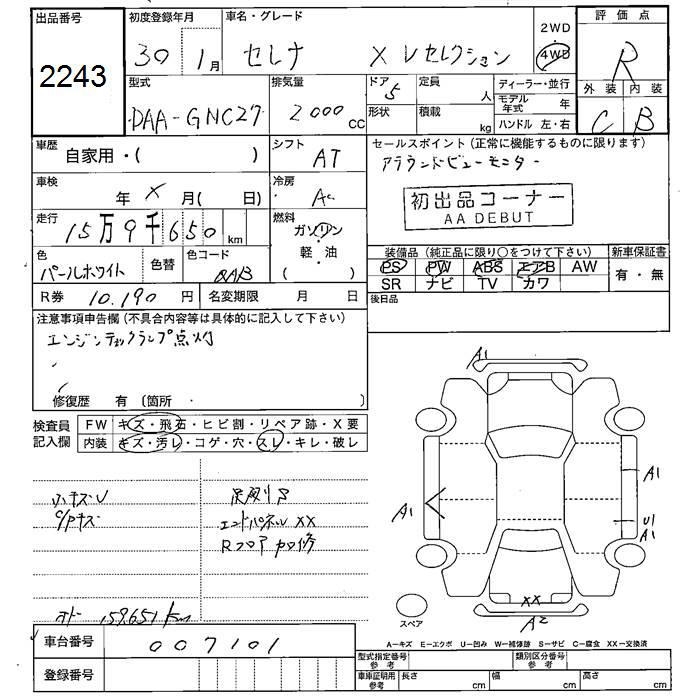 出品番号
2243
初度登録年月
30 1月
車名・グレード
セレナ X Vセレクション
2WD
4WD
評価点
R
外装 内装
C B
型式
DAA-GNC27
排気量
2000 CC
ドア
5
形状
定員
人
積載
kg
ディーラー・並行
モデル年式 年
ハンドル 左・右
車歴
自家用・( )
シフト
AT
セールスポイント (正常に機能するものに限ります)
アラウンドビューモニター
初出品コーナー
AA DEBUT
車検
年 X 月( 日)
冷房
AC
走行
15万9千650 km
燃料
ガソリン
軽・油
色
パールホワイト
色替
色コード
QAB
装備品 (純正品に限り○をつけて下さい)
PS PW ABS エアB AW
SR ナビ TV カワ
新車保証書
有・無
R券 10,190 円
名変期限 月 日
後日品
注意事項申告欄 (不具合内容等は具体的に記入して下さい)
エンジンチェックランプ点灯
修復歴 有 (箇所
検査員
記入欄
FW キズ・飛石・ヒビ割・リペア跡・X要
内装 キズ・汚レ・コゲ・穴・スレ・キレ・破レ
小キズU
エンドパネルXX
Rフロア カロ修
オドー 159651 km
車台番号
007101
登録番号
A1
A1
A1
U1
A1
XX
A2
スペア
A-キズ E-エクボ U-凹み W-補修跡 S-サビ C-腐食 XX-交換済
型式指定番号
参考
類別区分番号
参考
車庫証明用
参考
長さ cm
幅 cm
高さ cm